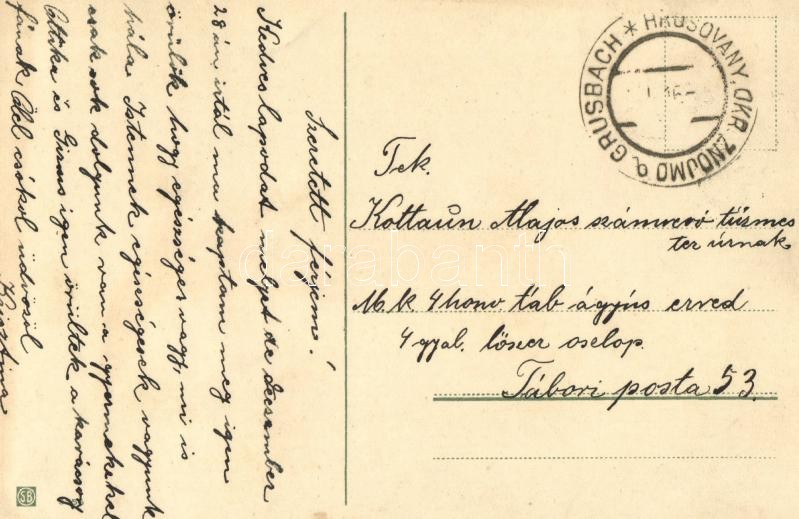 Szeretett férjem!
Kedves lapodat melyet de decsember
28 án irtál ma kaptam meg igen
örülök hogy egészséges vagy, mi is
hála Istennek egisségesek vagyunk
csak sok dolgunk van a gyermekekel
Attika és igen örültek a karácsoy
fának csókol üdvözöl
Krisztina
HRUŠOVANY, OKR. ZNOJMO GRUSBACH
Tek.
Kottaun Alajos számvevő tűzmes
ter úrnak
M. k 4 honv. táb ágyús ezred
4 gyal. lőszer oszlop.
Tábori posta 53.
SB
darabanth